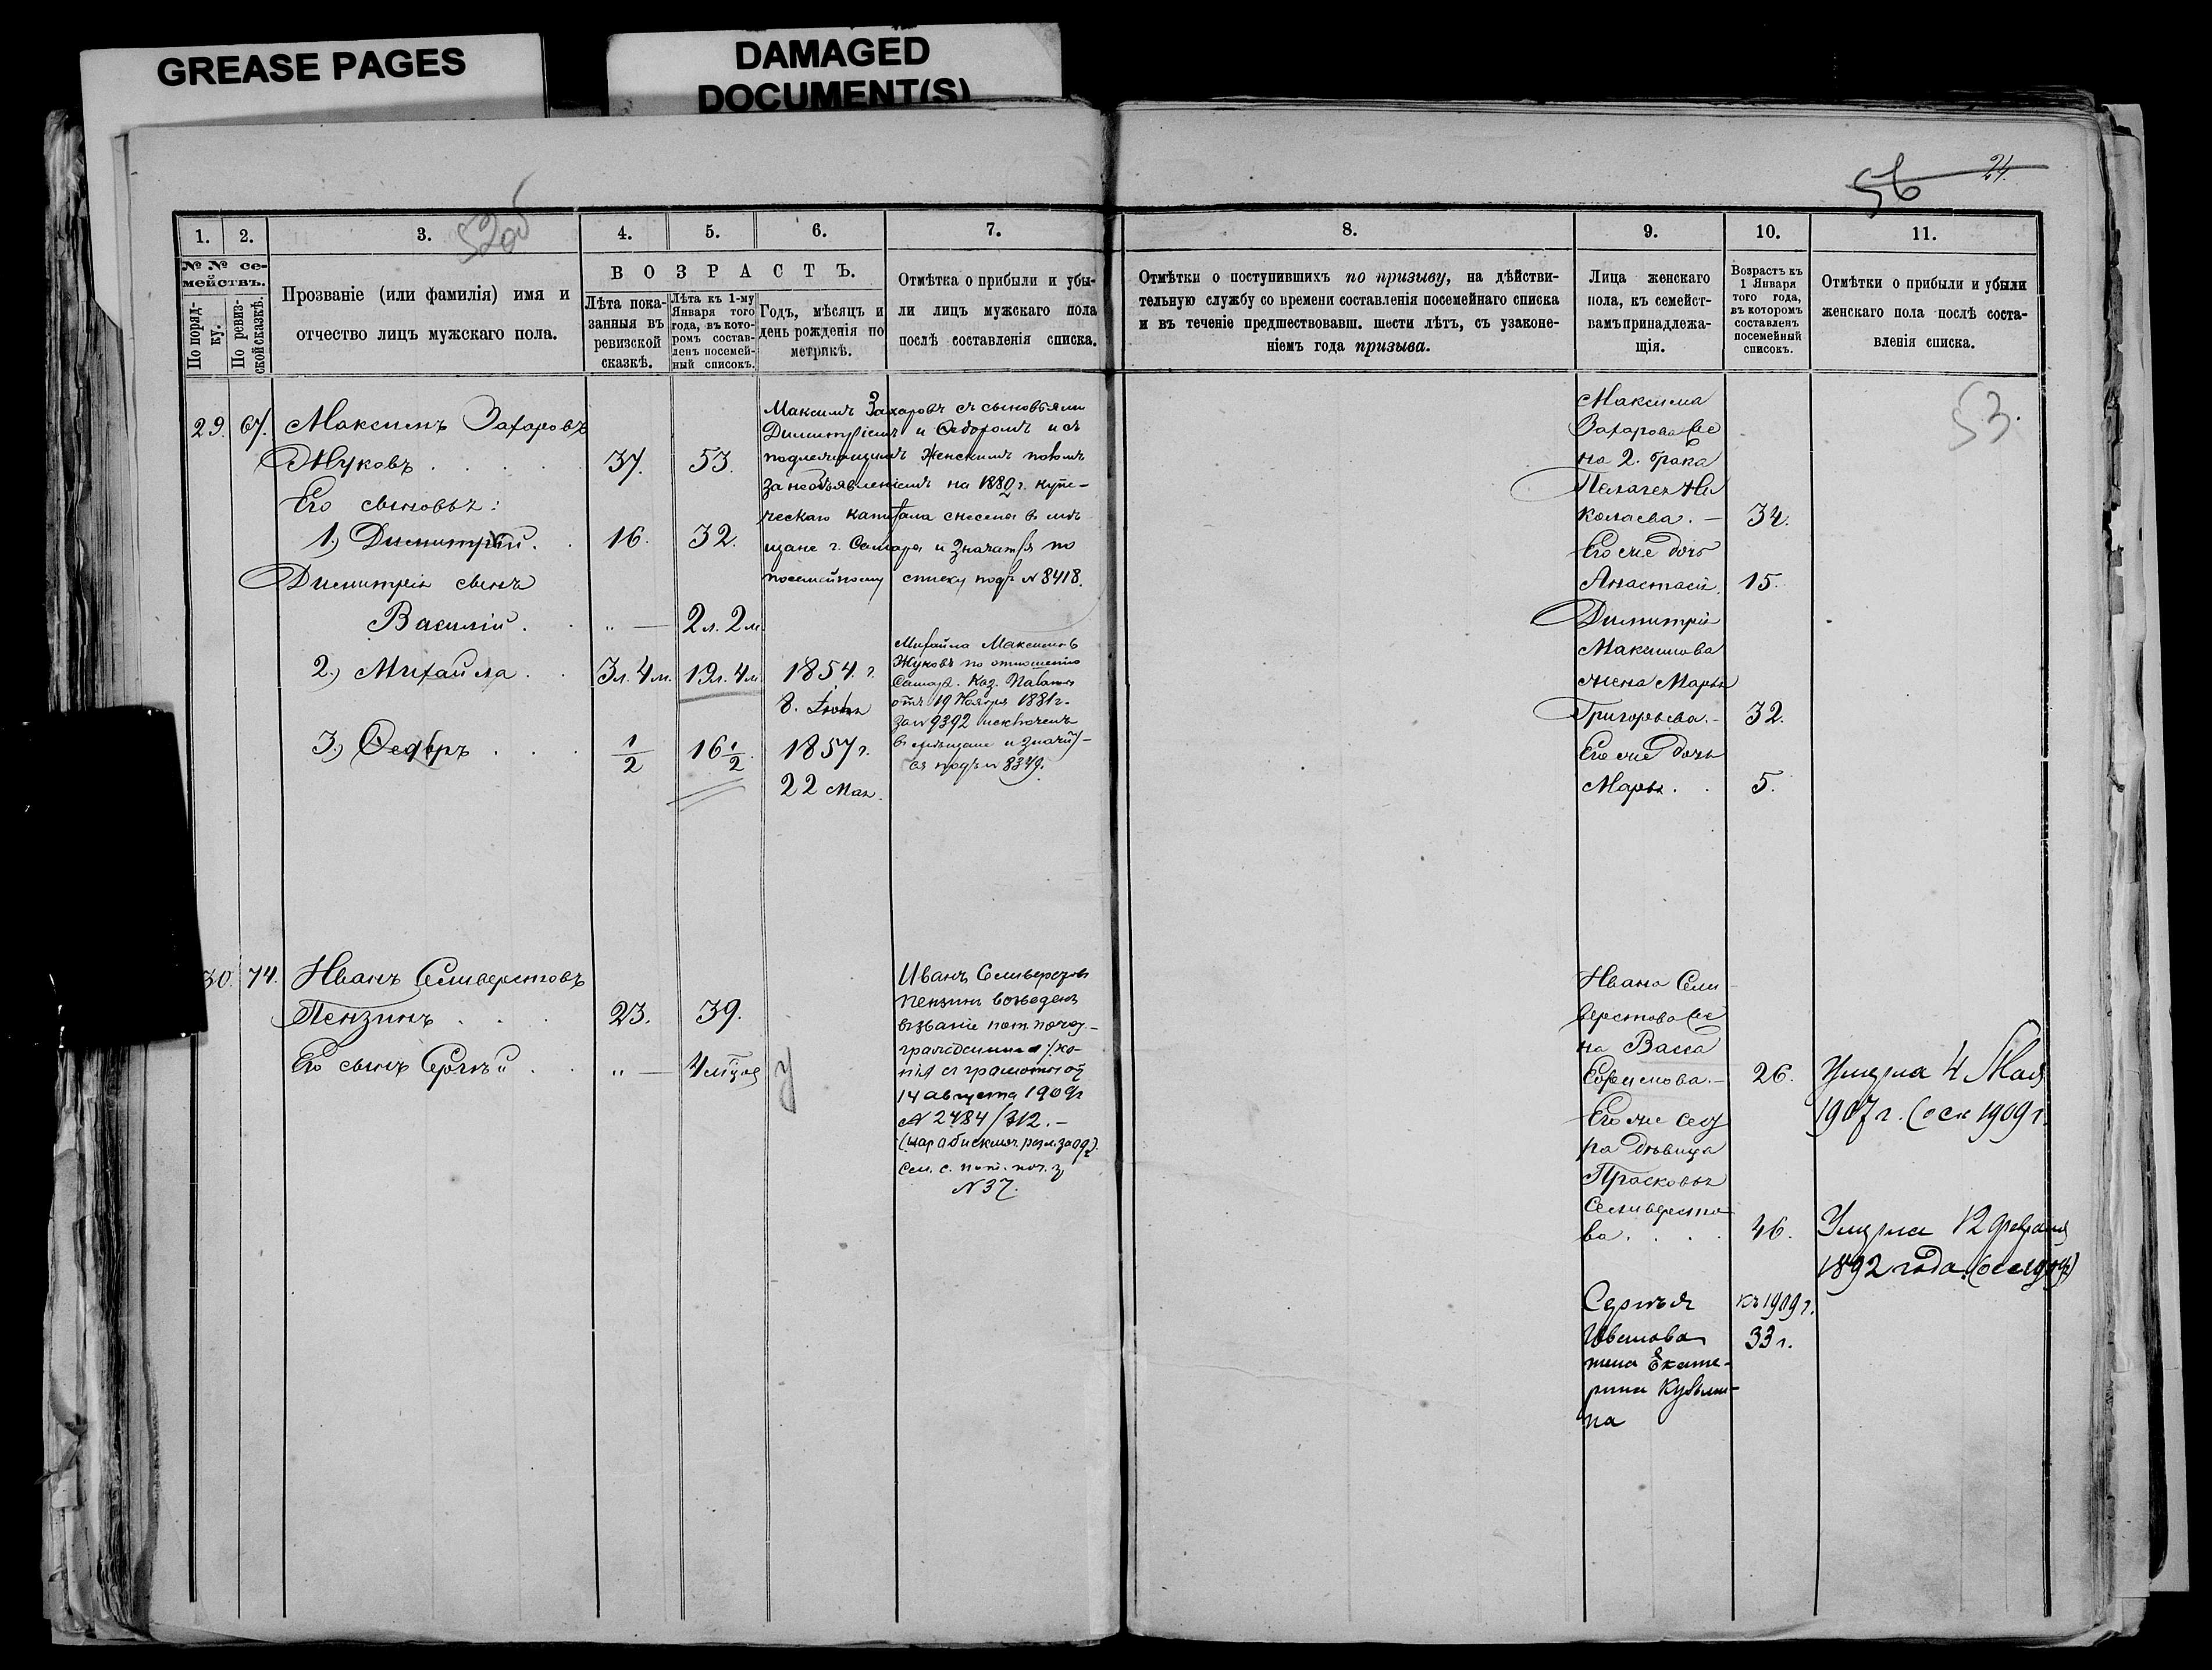 GREASE PAGES
DAMAGED
DOCUMENT(S)
24.
56
52об
1.
2.
3.
4.
5.
6.
7.
8.
9.
10.
11.
№№ се-
мействъ.
По поряд-
ку.
По ревиз-
ской сказкѣ.
Прозваніе (или фамилія) имя и
отчество лицъ мужскаго пола.
ВОЗРАСТЪ.
Лѣта пока-
занныя въ
ревизской
сказкѣ.
Лѣта къ 1-му
Января того
года, въ кото-
ромъ состав-
ленъ посемей-
ный списокъ.
Годъ, мѣсяцъ и
день рожденія по
метрикѣ.
Отмѣтка о прибыли и убы-
ли лицъ мужскаго пола
послѣ составленія списка.
Отмѣтки о поступившихъ по призыву, на дѣйстви-
тельную службу со времени составленія посемейнаго списка
и въ теченіе предшествовавш. шести лѣтъ, съ узаконе-
ніемъ года призыва.
Лица женскаго
пола, къ семейст-
вамъ принадлежа-
щія.
Возрастъ къ
1 Января
того года,
въ которомъ
составленъ
посемейный
списокъ.
Отмѣтки о прибыли и убыли
женскаго пола послѣ соста-
вленія списка.
53.
29. 67. Максимъ Захаровъ
Жуковъ . . . . 37. 53.
Его сыновья:
1.) Димитрій. . 16. 32.
Димитрія сынъ
Василій . . „ — 2 л. 2 м.
2.) Михайла . . 3 л. 4 м. 19 л. 4 м. 1854. г.
8. Іюня
3.) Ѳедоръ . . . 1/2 16 1/2. 1857 г.
22 Мая.
Максимъ Захаровъ съ сыновьями
Димитріемъ и Ѳедоромъ и съ
подлежащимъ женскимъ поломъ
за необъявленіемъ на 1882 г. купе-
ческаго капитала снесены въ мѣ-
щане г. Самара и значатся по
посемейному списку подъ № 8418.
Михайла Максимовъ
Жуковъ по отношенію
Самар. Каз. Палаты
отъ 19 Ноября 1881 г.
за № 9392 исключенъ
въ мѣщане и значит-
ся подъ № 8349.
Максима
Захарова же
на 2. брака
Пелагея Ни
колаева. — 34.
Его же дочь
Анастасія. 15.
Димитрія
Максимова
жена Марья
Григорьева. — 32.
Его же дочь
Марья . . 5.
30. 74. Иванъ Селиверстовъ
Пензинъ . . . 23. 39.
Его сынъ Сергѣй . . „ —
Иванъ Селиверстовъ
Пензинъ возведенъ
въ званіе пот. почет.
гражданина /. ко-
пія съ грамоты отъ
14 августа 1909 г
№ 2484/312. —
См. с. пот. поч. г.
№ 37.
Ивана Сели
верстова же
на Васса
Ефимова. — 26. Умерла 4 Мая
1907 г. (осн 1909 г.
Его же сест
ра дѣвица
Прасковья
Селиверсто
ва. . . . 46. Умерла 12 февраля
1892 года.
Сергѣя къ 1909 г.
Иванова 33 г.
жена Екате-
рина Кузьми-
на